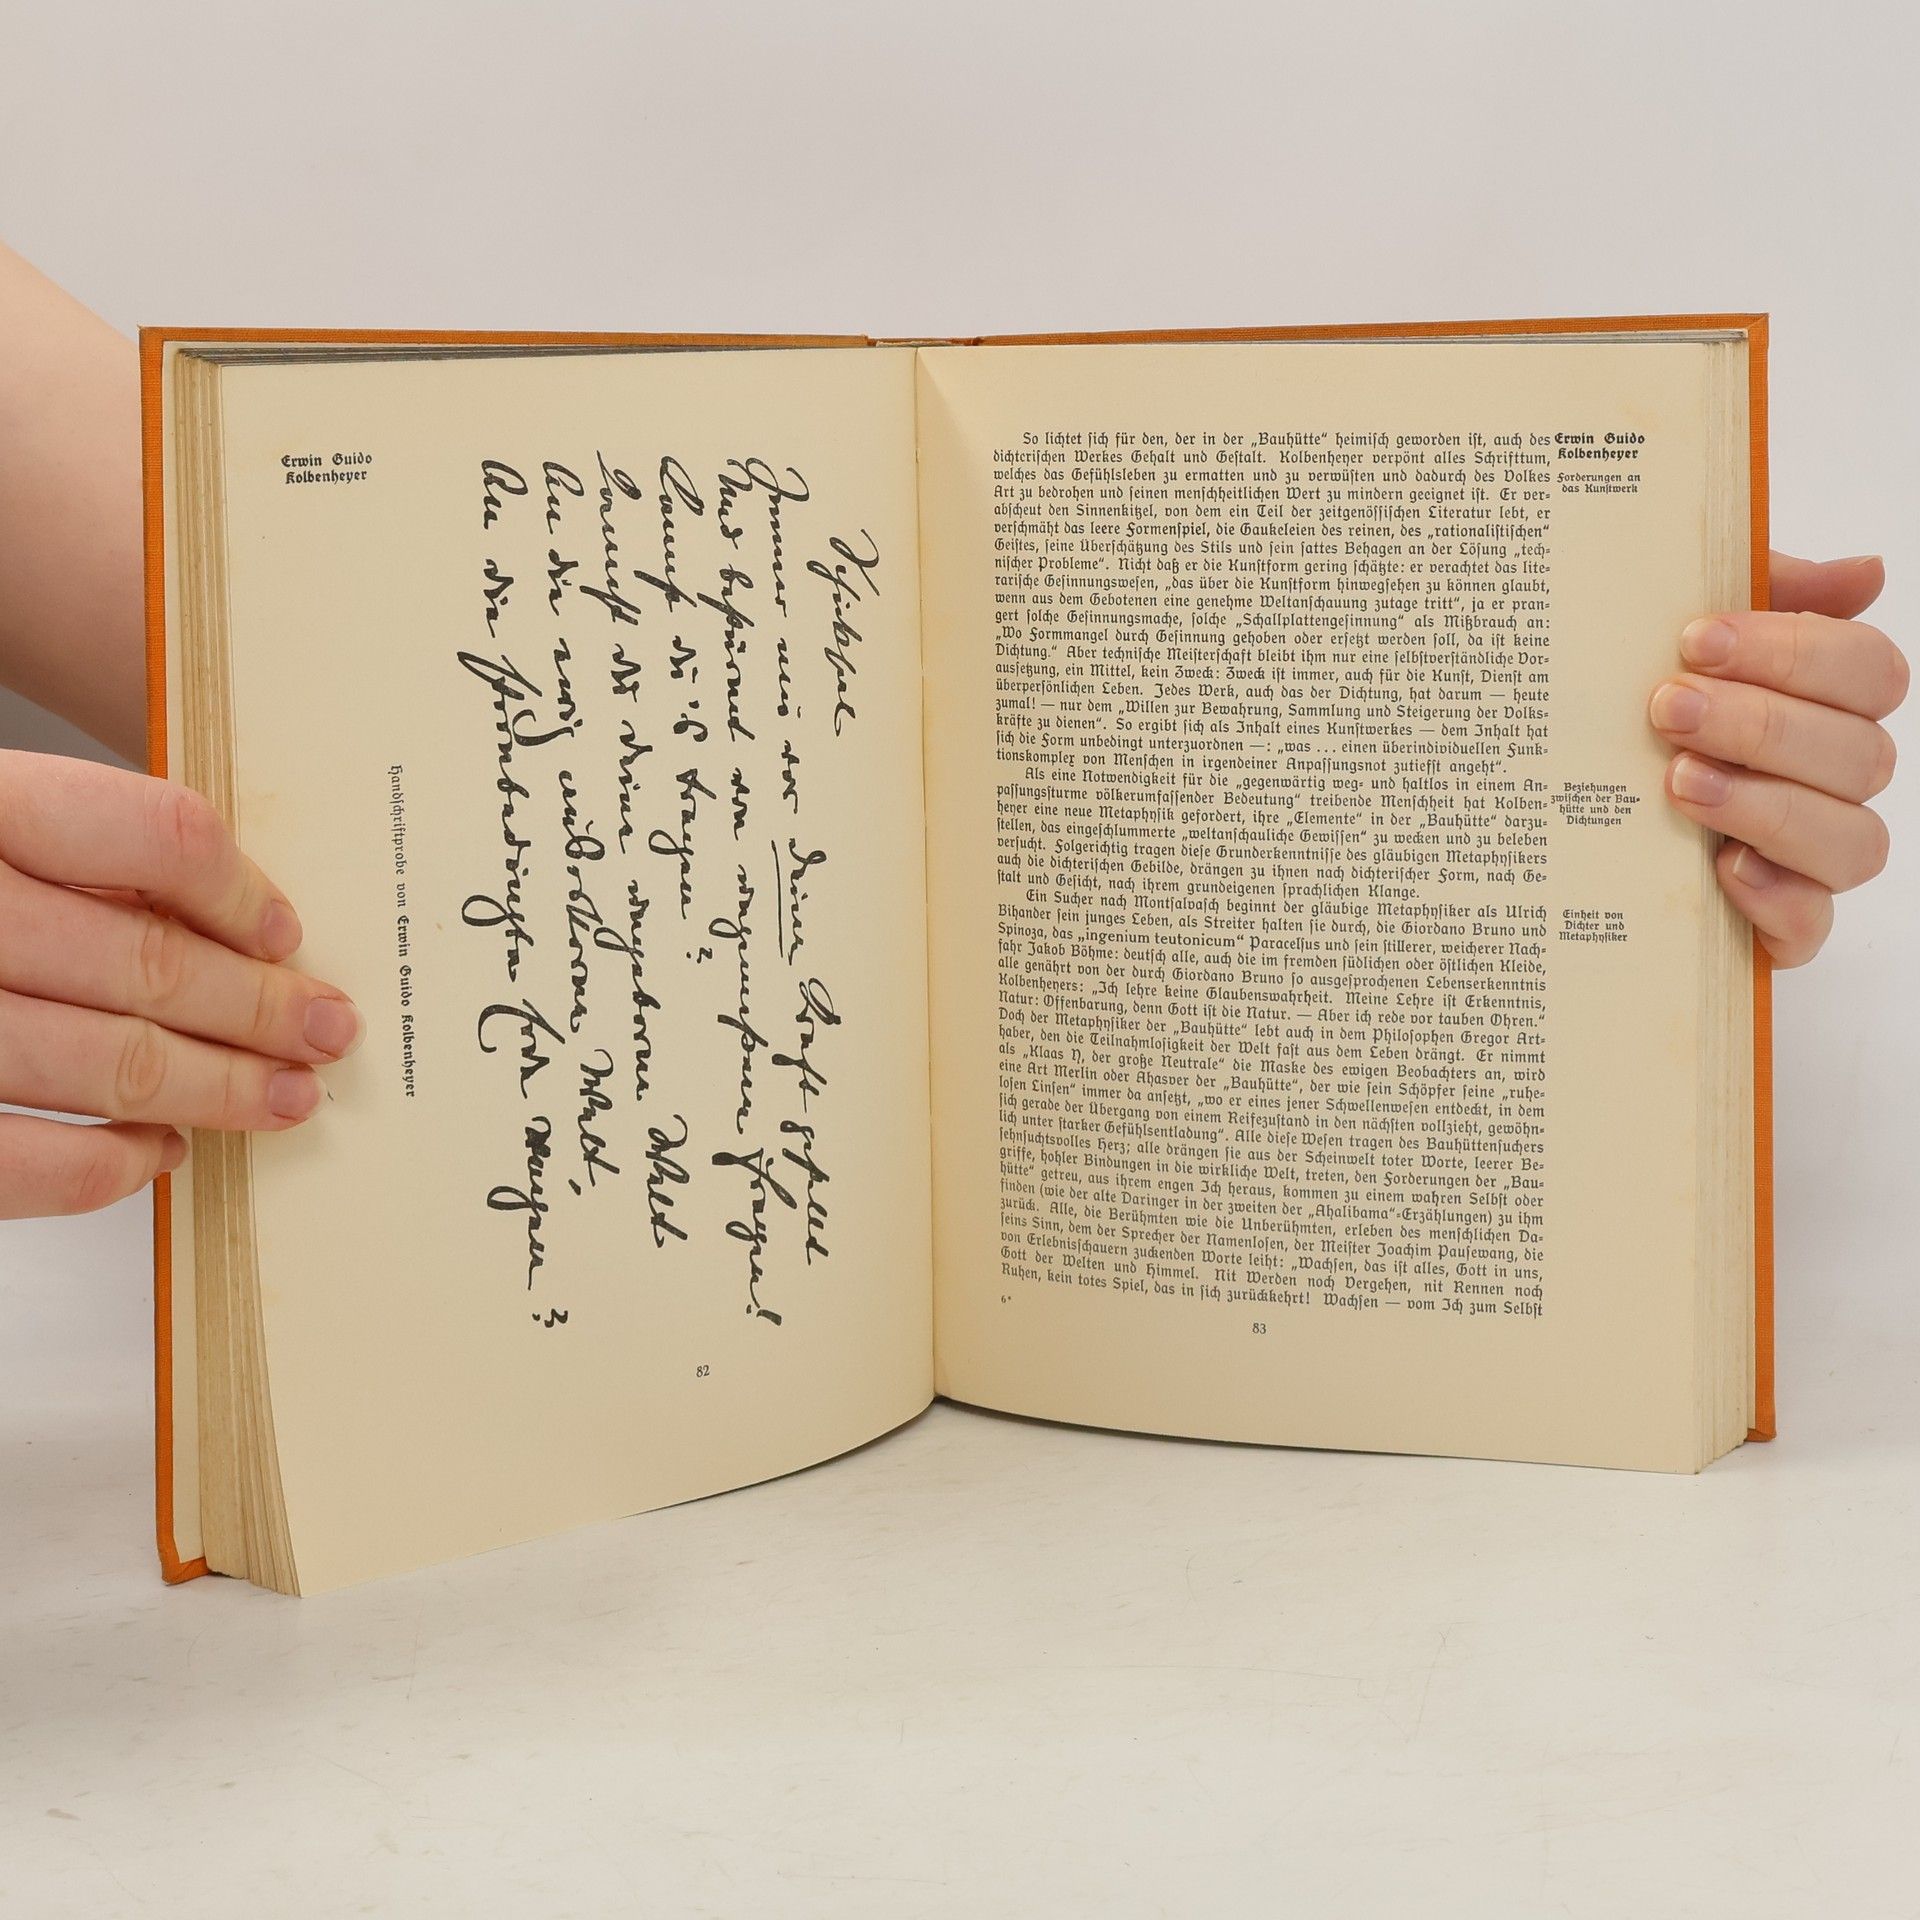 Erwin Guido
Kolbenheyer
Schicksal
Immer nur vor deine Kraft gestellt
Und bestürmt von ungemessnen Fragen!
Kannst du's tragen?
Lauscht der deiner ungebornen Welt
An die ewig unverlorne Welt,
An die sternbedingte Erde wagen?
Handschriftprobe von Erwin Guido Kolbenheyer
82
So lichtet sich für den, der in der „Bauhütte“ heimisch geworden ist, auch des
dichterischen Werkes Gehalt und Gestalt. Kolbenheyer verpönt alles Schrifttum,
welches das Gefühlsleben zu ermatten und zu verwüsten und dadurch des Volkes
Art zu bedrohen und seinen menschheitlichen Wert zu mindern geeignet ist. Er ver-
abscheut den Sinnenkitzel, von dem ein Teil der zeitgenössischen Literatur lebt, er
verschmäht das leere Formenspiel, die Gaukeleien des reinen, des „rationalistischen“
Geistes, seine Überschätzung des Stils und sein sattes Behagen an der Lösung „tech-
nischer Probleme“. Nicht daß er die Kunstform gering schätzte: er verachtet das lite-
rarische Gesinnungswesen, „das über die Kunstform hinwegsehen zu können glaubt,
wenn aus dem Gebotenen eine genehme Weltanschauung zutage tritt“, ja er pran-
gert solche Gesinnungsmache, solche „Schallplattengesinnung“ als Mißbrauch an:
„Wo Formmangel durch Gesinnung gehoben oder ersetzt werden soll, da ist keine
Dichtung.“ Aber technische Meisterschaft bleibt ihm nur eine selbstverständliche Vor-
aussetzung, ein Mittel, kein Zweck: Zweck ist immer, auch für die Kunst, Dienst am
überpersönlichen Leben. Jedes Werk, auch das der Dichtung, hat darum — heute
zumal! — nur dem „Willen zur Bewahrung, Sammlung und Steigerung der Volks-
kräfte zu dienen“. So ergibt sich als Inhalt eines Kunstwerkes — dem Inhalt hat
sich die Form unbedingt unterzuordnen —: „was ... einen überindividuellen Funk-
tionskomplex von Menschen in irgendeiner Anpassungsnot zutiefst angeht“.
Als eine Notwendigkeit für die „gegenwärtig weg- und haltlos in einem An-
passungssturme völkerumfassender Bedeutung“ treibende Menschheit hat Kolben-
heyer eine neue Metaphysik gefordert, ihre „Elemente“ in der „Bauhütte“ darzu-
stellen, das eingeschlummerte „weltanschauliche Gewissen“ zu wecken und zu beleben
versucht. Folgerichtig tragen diese Grunderkenntnisse des gläubigen Metaphysikers
auch die dichterischen Gebilde, drängen zu ihnen nach dichterischer Form, nach Ge-
stalt und Gesicht, nach ihrem grundeigenen sprachlichen Klange.
Ein Sucher nach Montsalvasch beginnt der gläubige Metaphysiker als Ulrich
Bihander sein junges Leben, als Streiter halten sie durch, die Giordano Bruno und
Spinoza, das „ingenium teutonicum“ Paracelsus und sein stillerer, weicherer Nach-
fahr Jakob Böhme: deutsch alle, auch die im fremden südlichen oder östlichen Kleide,
alle genährt von der durch Giordano Bruno so ausgesprochenen Lebenserkenntnis
Kolbenheyers: „Ich lehre keine Glaubenswahrheit. Meine Lehre ist Erkenntnis,
Natur: Offenbarung, denn Gott ist die Natur. — Aber ich rede vor tauben Ohren.“
Doch der Metaphysiker der „Bauhütte“ lebt auch in dem Philosophen Gregor Art-
haber, den die Teilnahmlosigkeit der Welt fast aus dem Leben drängt. Er nimmt
als „Klaas Y, der große Neutrale“ die Maske des ewigen Beobachters an, wird
eine Art Merlin oder Ahasver der „Bauhütte“, der wie sein Schöpfer seine „ruhe-
losen Linsen“ immer da ansetzt, „wo er eines jener Schwellenwesen entdeckt, in dem
sich gerade der Übergang von einem Reifezustand in den nächsten vollzieht, gewöhn-
lich unter starker Gefühlsentladung“. Alle diese Wesen tragen des Bauhüttensuchers
sehnsuchtsvolles Herz; alle drängen sie aus der Scheinwelt toter Worte, leerer Be-
griffe, hohler Bindungen in die wirkliche Welt, treten, den Forderungen der „Bau-
hütte“ getreu, aus ihrem engen Ich heraus, kommen zu einem wahren Selbst oder
finden (wie der alte Daringer in der zweiten der „Ahalibama“-Erzählungen) zu ihm
zurück. Alle, die Berühmten wie die Unberühmten, erleben des menschlichen Da-
seins Sinn, dem der Sprecher der Namenlosen, der Meister Joachim Pausewang, die
von Erlebnisschauern zuckenden Worte leiht: „Wachsen, das ist alles, Gott in uns,
Gott der Welten und Himmel. Nit Werden noch Vergehen, nit Rennen noch
Ruhen, kein totes Spiel, das in sich zurückkehrt! Wachsen — vom Ich zum Selbst
6*
83
Erwin Guido
Kolbenheyer
Forderungen an
das Kunstwerk
Beziehungen
zwischen der Bau-
hütte und den
Dichtungen
Einheit von
Dichter und
Metaphysiker